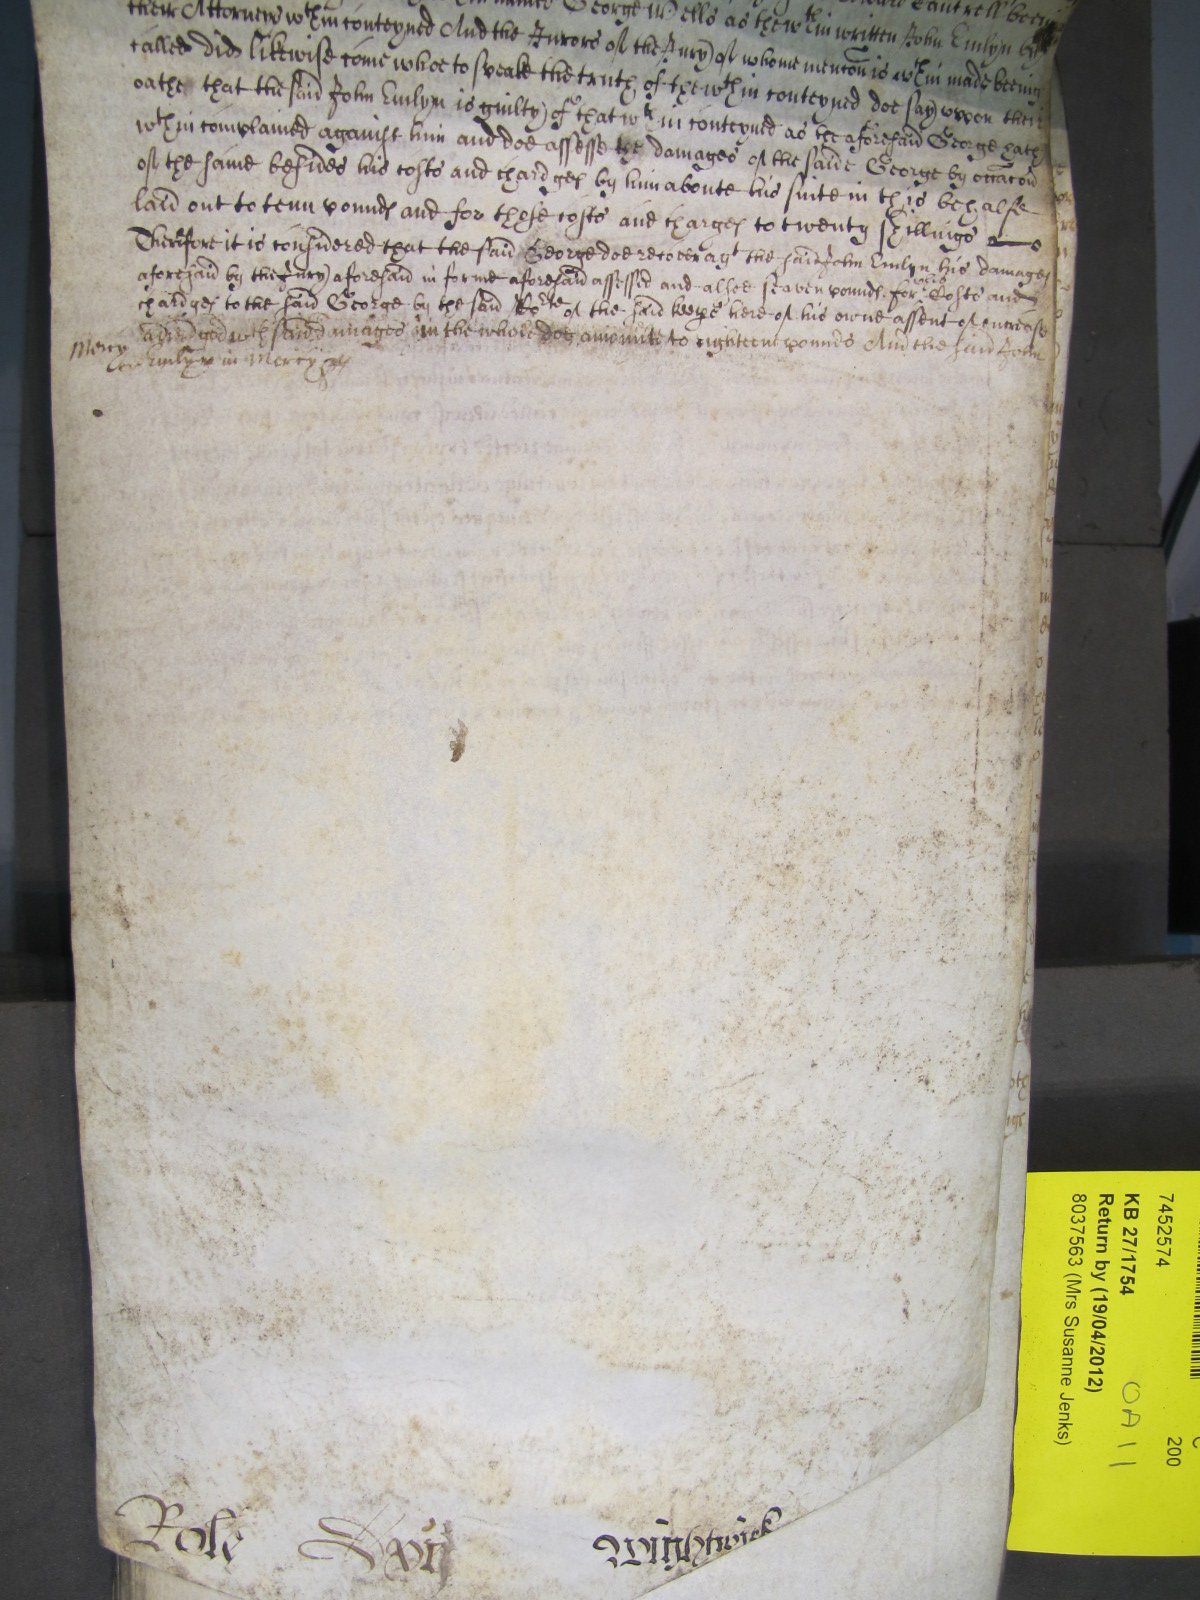 George Wells as the wthin written John Emlyn by
their Attorneys wthin conteyned And the Jurors of the Jury of whome mencon is wthin made beeing
called did likewise come whoe to speake the truth of the wthin conteyned doe say uppon their
oathe that the said John Emlyn is guilty of that wthin conteyned as the aforesaid George hath
wthin complained against him and doe assesse the damages of the saide George by occacon
of the same besides his costs and chardges by him aboute his suite in this behalfe
laid out to tenn pounds and for those costs and charges to twenty shillings
Therefore it is considered that the said George doe recover agt the said John Emlyn his damages
aforesaid by the Jury aforesaid in forme aforesaid assessed and alsoe seaven pounds for his Costs and
chardges to the said George by the said Corte of the said here of his owne assent of increase
adjudged wch said damages in the whole doe amounte to eighteen pounds And the said John
Mercy
Emlyn in Mercy &c
Role Wightwick
7452574
KB 27/1754
Return by (19/04/2012)
8037563 (Mrs Susanne Jenks)
200
OA 11